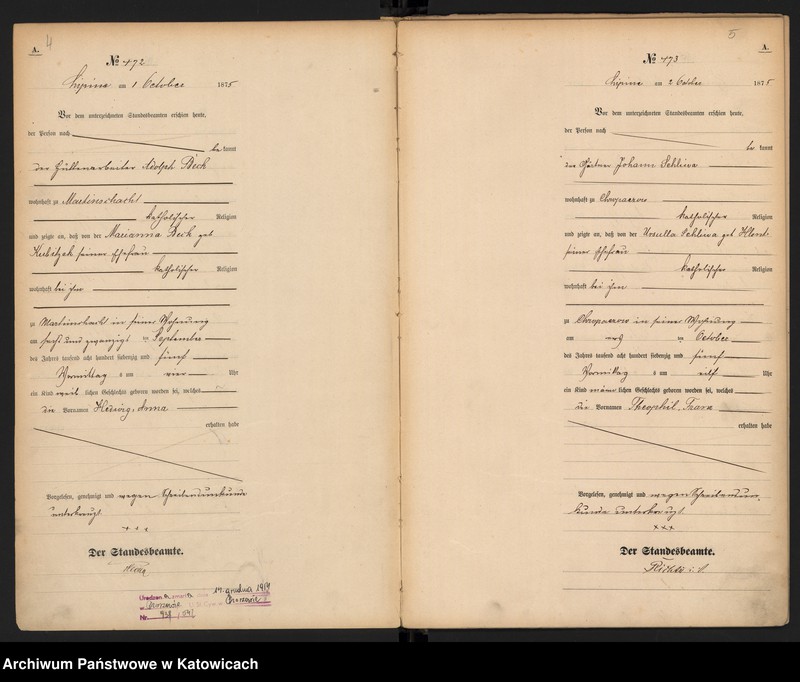 A.
4
№ 472
Lipine am 1 October 1875
Vor dem unterzeichneten Standesbeamten erschien heute,
der Person nach
bekannt
der Hüttenarbeiter Adolph Beck
wohnhaft zu Martinschacht
katholischer Religion
und zeigte an, daß von der Marianna Beck geb
Kubitzek seiner Ehefrau
katholischer Religion
wohnhaft bei ihm
zu Martinschacht in seiner Wohnung
am sechs und zwanzigst en September
des Jahres tausend acht hundert siebenzig und fünf
Vormittag s um vier Uhr
ein Kind weib lichen Geschlechts geboren worden sei, welches
die Vornamen Hedwig, Anna
erhalten habe
Vorgelesen, genehmigt und wegen Schreibensunkunde
unterkreuzt
+ + +
Der Standesbeamte.
17. grudnia 1919
Nr.
5
A.
№ 473
Lipine am 2 October 1875
Vor dem unterzeichneten Standesbeamten erschien heute,
der Person nach
bekannt
der Johann Schliwa
wohnhaft zu Chropaczow
katholischer Religion
und zeigte an, daß von der Ursulla Schliwa geb
seiner Ehefrau
katholischer Religion
wohnhaft bei ihm
zu Chropaczow in seiner Wohnung
am en October
des Jahres tausend acht hundert siebenzig und fünf
Vormittag s um elf Uhr
ein Kind männ lichen Geschlechts geboren worden sei, welches
die Vornamen Theophil, Franz
erhalten habe
Vorgelesen, genehmigt und wegen Schreibensun-
kunde unterkreuzt
+++
Der Standesbeamte.
Archiwum Państwowe w Katowicach